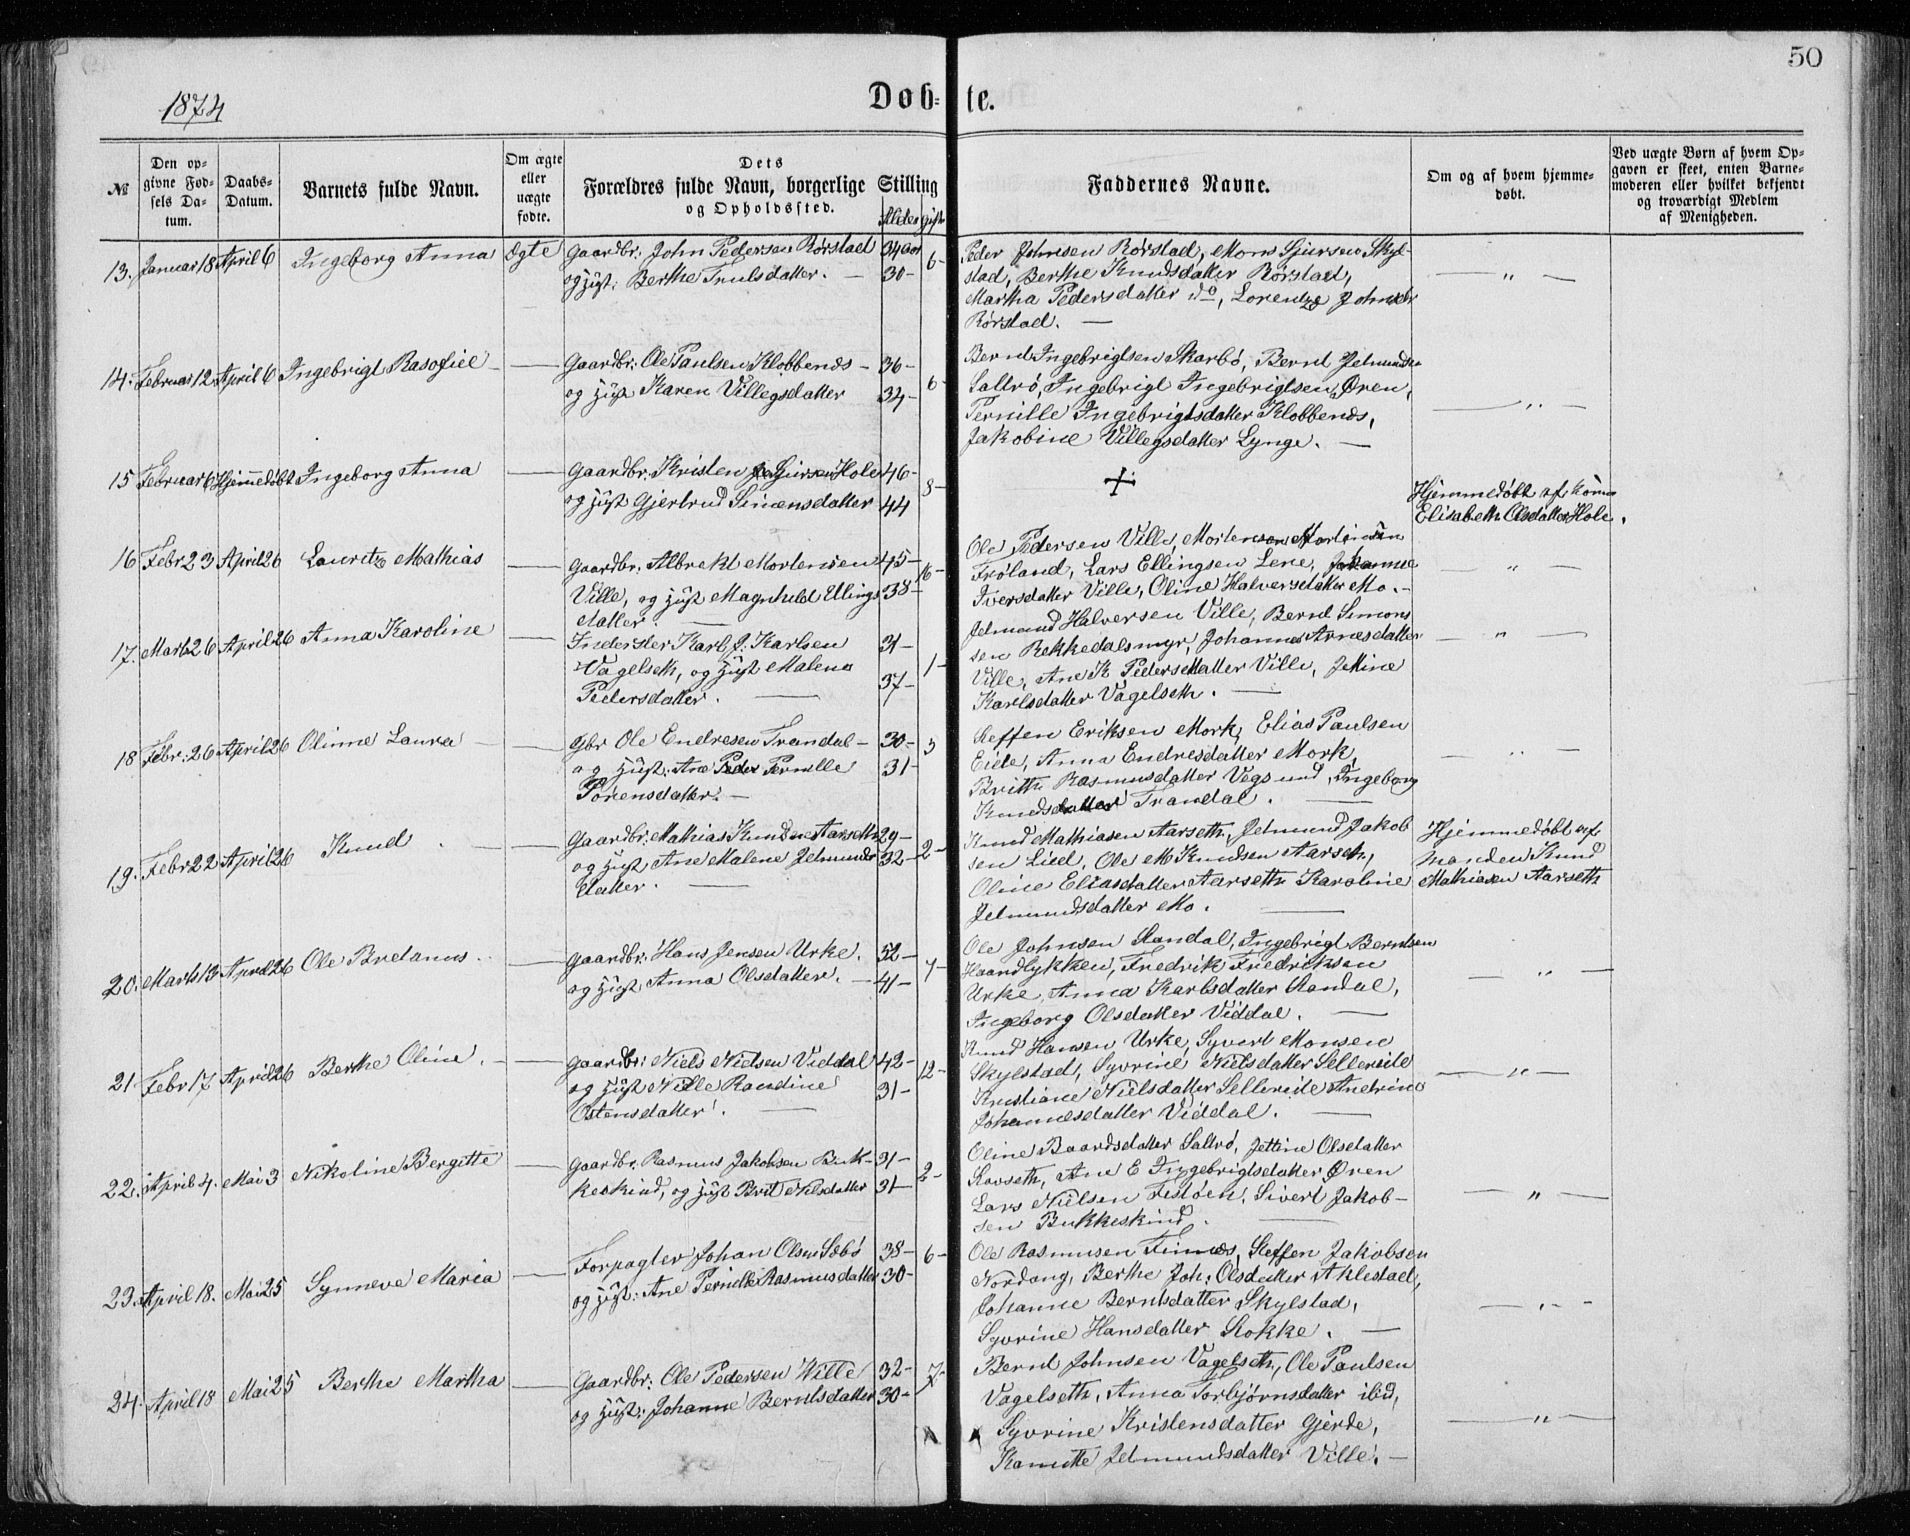 50
1874
Døb- te.
№
Den op-
givne Fød-
sels Da-
tum.
Daabs-
Datum.
Barnets fulde Navn.
Om ægte
eller
uægte
fødte.
Dets
Forældres fulde Navn, borgerlige Stilling
og Opholdssted.
Alder gift
Faddernes Navne.
Om og af hvem hjemme-
døbt.
Ved uægte Børn af hvem Op-
gaven er skeet, enten Barne-
moderen eller hvilket bekjendt
og troværdigt Medlem
af Menigheden.
13. Januar 18 April 6 Ingeborg Anna Ægte Gaardbr: John Pedersen Rørstad 34 aar 6-
og Hust: Berthe Trulsdatter. 30-
Peder Johnsen Rørstad, Mons Sjursen Skyl-
stad, Berthe Knudsdatter Rørstad,
Martha Pedersdatter do, Lorentze Johnsdr
Rørstad. —
— " —
14. Februar 12 April 6 Ingebrigt Rasofiel — Gaardbr: Ole Paulsen Klobbenæs - 36- 6-
og Hust Karen Villegsdatter 34-
Bernt Ingebrigtsen Skarbø, Bernt Jetmundsen
Saltrø, Ingebrigt Ingebrigtsen Øren,
Pernille Ingebrigtsdatter Klobbenæs,
Jakobine Villegsdatter Lynge. —
— " —
15 Februar 6 Hjemmedøbt Ingeborg Anna — Gaardbr: Kristen Sjursen Hole 46- 8-
og Hust Gjertrud Simensdatter 44
+
Hjemmedøbt af Konen
Elisabeth Olsdatter Hole.
16 Febr 23 April 26 Lauritz Mathias — Gaardbr: Albrekt Mortensen 45- 16-
Ville, og Hust Magnhild Ellings 38-
datter —
Ole Pedersen Ville, Morten Martinusen
Frøland, Lars Ellingsen Lene, Johanne
Iversdatter Ville, Oline Halversdatter Mo. -
— " —
17. Marts 26 April 26 Anna Karoline — Inderster Karl J. Karlsen 31- 1-
Vagelseth, og Hust Malena 37-
Pedersdatter. —
Jetmund Halversen Ville, Bernt Simons
sen Rekkedalsmyr, Johanne Arnesdatter
Ville, Ane K Pedersdatter Ville, Jetine
Karlsdatter Vagelseth. —
— " —
18 Febr: 26 April 26 Olinne Laura — Gbr Ole Endresen Trandal - 30- 3
og Hust: Ane Pernille 31-
Sørensdatter. —
Steffen Eriksen Mork, Elias Paulsen
Eide, Anna Endresdatter Mork,
Brith Rasmusdatter Vegsund, Ingeborg
Knudsdatter Trandal. —
— " —
19. Febr 22 April 26 Knud — Gaardbr: Mathias Knudsen Aarseth 29- 2-
og Hust Ane Malene Jetmunds 32-
datter. —
Knud Mathiasen Aarseth, Jetmund Jakob
sen Lied, Ole M Knudsen Aarseth,
Oline Eliasdatter Aarseth Karoline
Jetmundsdatter Mo. —
Hjemmedøbt af
Manden Knud
Mathiasen Aarseth
20. Marts 13 April 26 Ole Bretanus — Gaardbr: Hans Jensen Urke. 52- 7-
og Hust Anna Olsdatter. — 41-
Ole Johnsen Standal, Ingebrigt Berntsen
Haandlykken, Fredrik Fredriksen
Urke, Anna Karlsdatter Standal,
Ingeborg Olsdatter Viddal. —
— " —
21 Febr 17 April 26 Berthe Oline. — Gaardbr: Niels Nielsen Viddal 42- 12-
og Hust Nille Randine 31-
Ostensdatter. —
Knud Hansen Urke, Syvert Monsen
Skylstad, Syvrine Nielsdatter Sellereite
Kristiane Nielsdatter Sellereite Andrine
Johannesdatter Viddal. —
— " —
22. April 4. Mai 3 Nikoline Bergitte — Gaardbr: Rasmus Jakobsen Buk- 31- 2-
keskind, og Hust Brit Nilsdatter 31-
Oline Baardsdatter Saltrø, Jettine Olsdatter
Stavseth, Ane E Ingebrigtsdatter Øren
Lars Nielsen Festøen, Sivert Jakob-
sen Bukkeskind. —
— " —
23. April 18. Mai 25 Synneve Maria — Forpagter Johan Olsen Sæbø 38- 6-
og Hust: Ane Pernille Rasmusdatter 30-
Ole Rasmusen Finnæs, Steffen Jakobsen
Nordang, Berthe Joh: Olsdatter Aklestad,
Johanne Berntsdatter Skylstad,
Syvrine Hansdatter Stokke. —
— " —
24. April 18 Mai 25 Berthe Martha — Gaardbr: Ole Pedersen Wille 32- 7-
og Hust: Johanne Berntsdatter 30-
Bernt Johnsen Vagelseth, Ole Paulsen
Vagelseth, Anna Torbjørnsdatter ibid,
Syvrine Kristensdatter Gjerde,
Kamitte Jetmundsdatter Ville. —
— " —